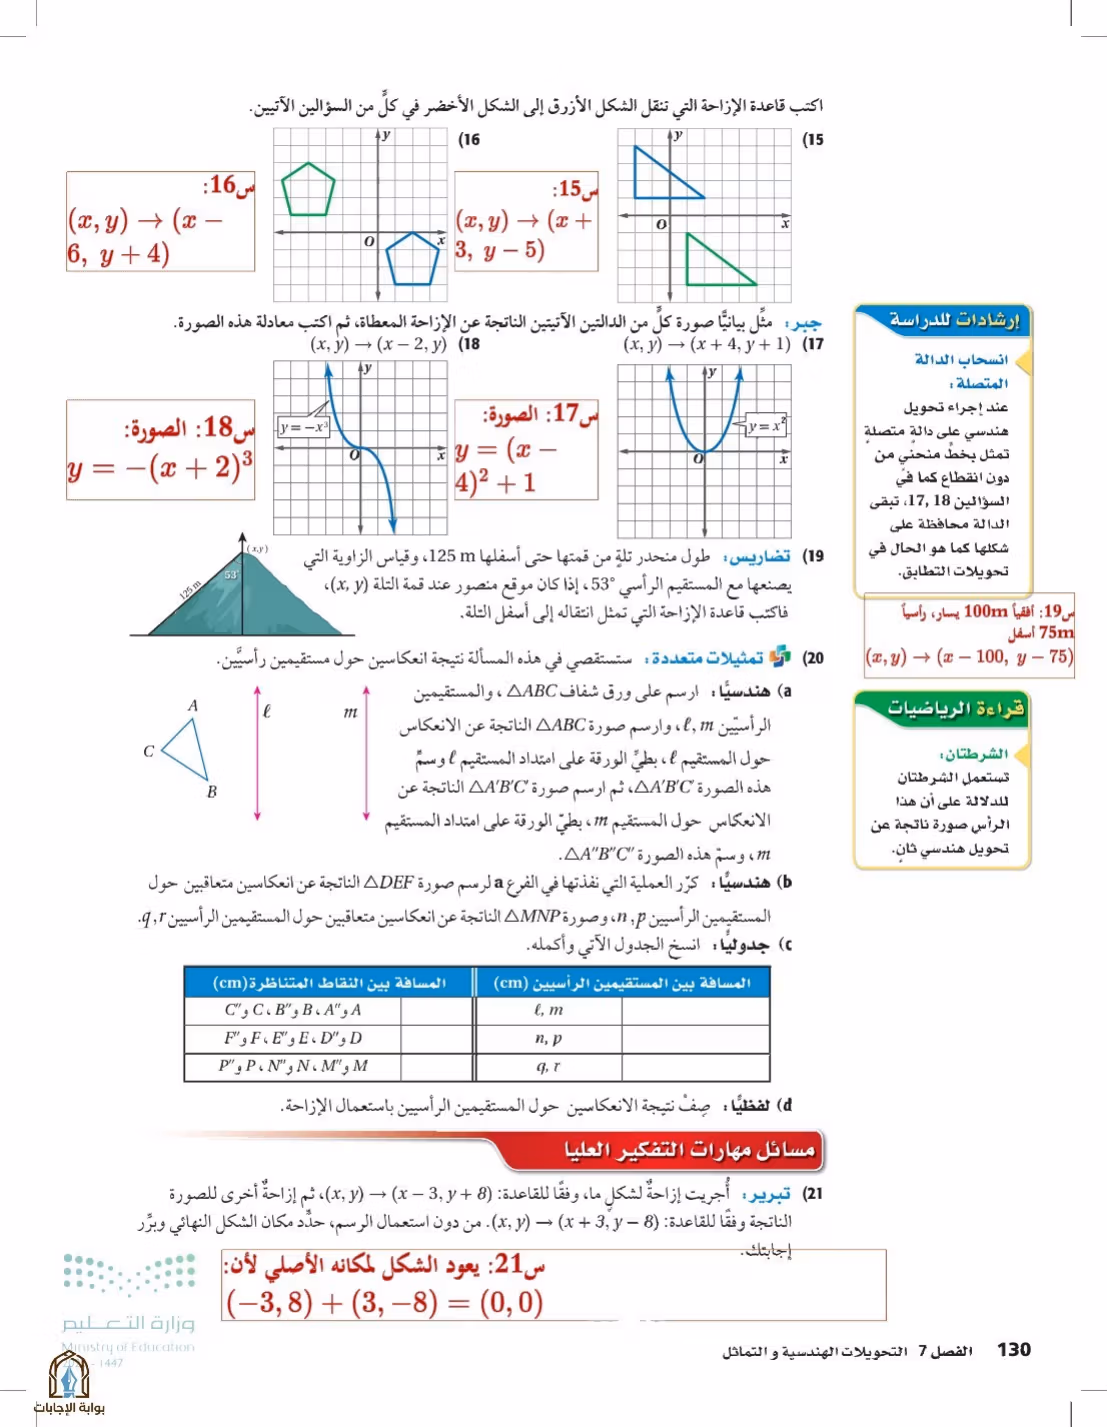 اكتب قاعدة الإزاحة التي تنقل الشكل الأزرق إلى الشكل الأخضر في كلٍّ من السؤالين الآتيين.
(15
y
O
x
س15:
(x, y) → (x +
3, y − 5)
(16
y
O
x
س16:
(x, y) → (x −
6, y + 4)
جبر: مثِّل بيانيًّا صورة كلٍّ من الدالتين الآتيتين الناتجة عن الإزاحة المعطاة، ثم اكتب معادلة هذه الصورة.
(17 (x, y) → (x + 4, y + 1)
y
y = x²
O
x
س17: الصورة:
y = (x −
4)² + 1
(18 (x, y) → (x − 2, y)
y
y = −x³
O
x
س18: الصورة:
y = −(x + 2)³
(19 تضاريس: طول منحدر تلةٍ من قمتها حتى أسفلها 125 m، وقياس الزاوية التي
يصنعها مع المستقيم الرأسي 53°، إذا كان موقع منصور عند قمة التلة (x, y)،
فاكتب قاعدة الإزاحة التي تمثل انتقاله إلى أسفل التلة.
(x,y)
53°
125 m
(20 تمثيلات متعددة: ستستقصي في هذه المسألة نتيجة انعكاسين حول مستقيمين رأسيَّين.
(a هندسيًّا: ارسم على ورق شفاف △ABC، والمستقيمين
الرأسيّين ℓ, m، وارسم صورة △ABC الناتجة عن الانعكاس
حول المستقيم ℓ، بطيِّ الورقة على امتداد المستقيم ℓ وسمِّ
هذه الصورة △A′B′C′، ثم ارسم صورة △A′B′C′ الناتجة عن
الانعكاس حول المستقيم m، بطيّ الورقة على امتداد المستقيم
m، وسمّ هذه الصورة △A″B″C″.
A
C
B
ℓ
m
(b هندسيًّا: كرّر العملية التي نفذتها في الفرع a لرسم صورة △DEF الناتجة عن انعكاسين متعاقبين حول
المستقيمين الرأسيين n, p، وصورة △MNP الناتجة عن انعكاسين متعاقبين حول المستقيمين الرأسيين q, r.
(c جدوليًّا: انسخ الجدول الآتي وأكمله.
المسافة بين المستقيمين الرأسيين (cm) المسافة بين النقاط المتناظرة (cm)
ℓ, m A و A″، B و B″، C و C″
n, p D و D″، E و E″، F و F″
q, r M و M″، N و N″، P و P″
(d لفظيًّا: صِفْ نتيجة الانعكاسين حول المستقيمين الرأسيين باستعمال الإزاحة.
مسائل مهارات التفكير العليا
(21 تبرير: أُجريت إزاحةٌ لشكلٍ ما، وفقًا للقاعدة: (x, y) → (x − 3, y + 8)، ثم إزاحةٌ أخرى للصورة
الناتجة وفقًا للقاعدة: (x, y) → (x + 3, y − 8). من دون استعمال الرسم، حدِّد مكان الشكل النهائي وبرِّر
إجابتك.
س21: يعود الشكل لمكانه الأصلي لأن:
(−3, 8) + (3, −8) = (0, 0)
إرشادات للدراسة
انسحاب الدالة
المتصلة:
عند إجراء تحويل
هندسي على دالةٍ متصلةٍ
تمثل بخطٍّ منحني من
دون انقطاع كما في
السؤالين 17, 18، تبقى
الدالة محافظة على
شكلها كما هو الحال في
تحويلات التطابق.
س19: أفقياً 100m يسار، رأسياً
75m أسفل
(x, y) → (x − 100, y − 75)
قراءة الرياضيات
الشرطتان:
تستعمل الشرطتان
للدلالة على أن هذا
الرأس صورة ناتجة عن
تحويل هندسي ثانٍ.
وزارة التعليم
Ministry of Education
- 1447
بوابة الإجابات
130 الفصل 7 التحويلات الهندسية و التماثل